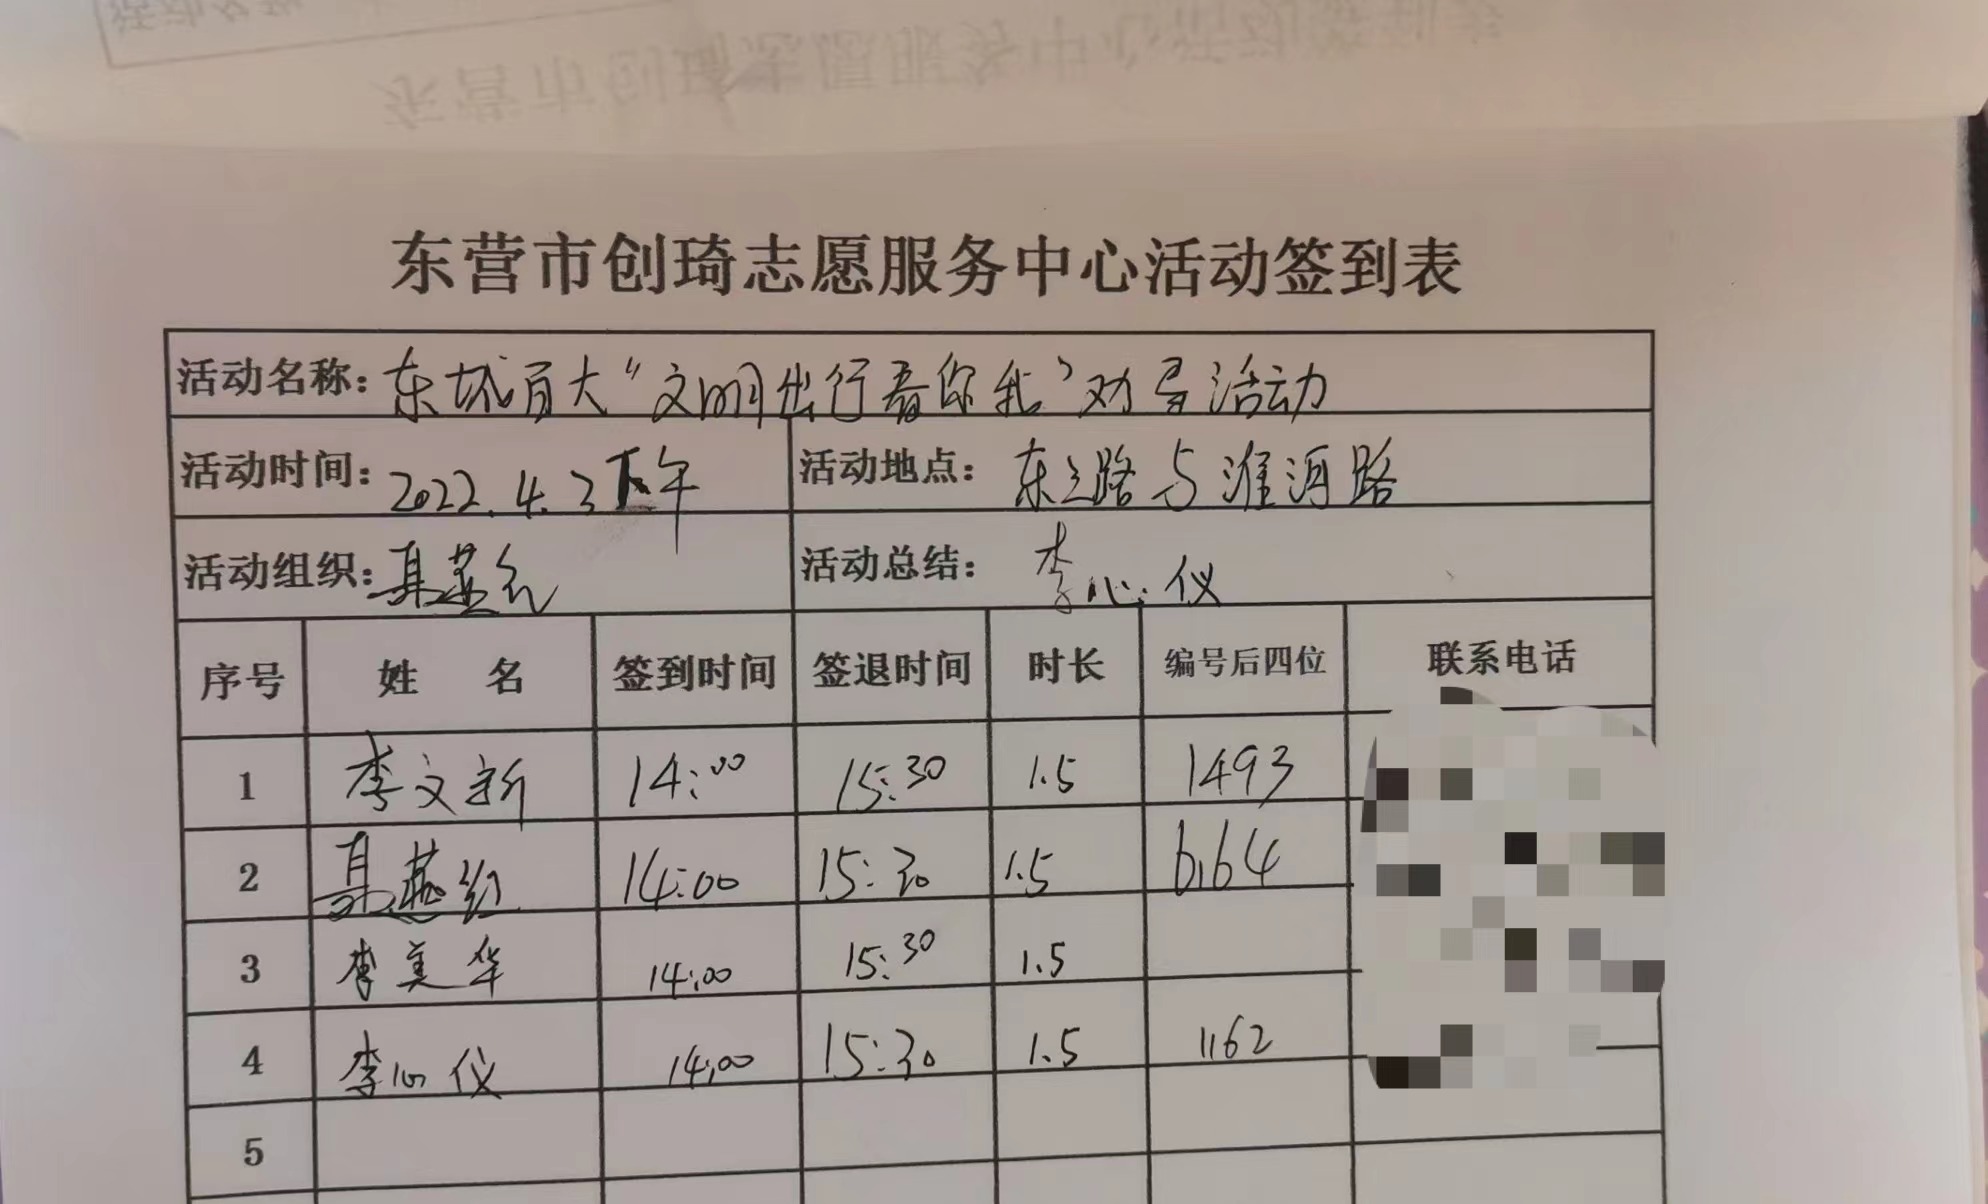 东营市创琦志愿服务中心活动签到表
东营市创琦志愿服务中心活动签到表
活动名称：东城百大“文明出行看你我”劝导活动
活动时间：2022.4.3下午 活动地点：东三路与淮河路
活动组织：聂燕红 活动总结：李心仪
序号 姓名 签到时间 签退时间 时长 编号后四位 联系电话
1 李文新 14:00 15:30 1.5 1493
2 聂燕红 14:00 15:30 1.5 6164
3 李美华 14:00 15:30 1.5
4 李心仪 14:00 15:30 1.5 1162
5